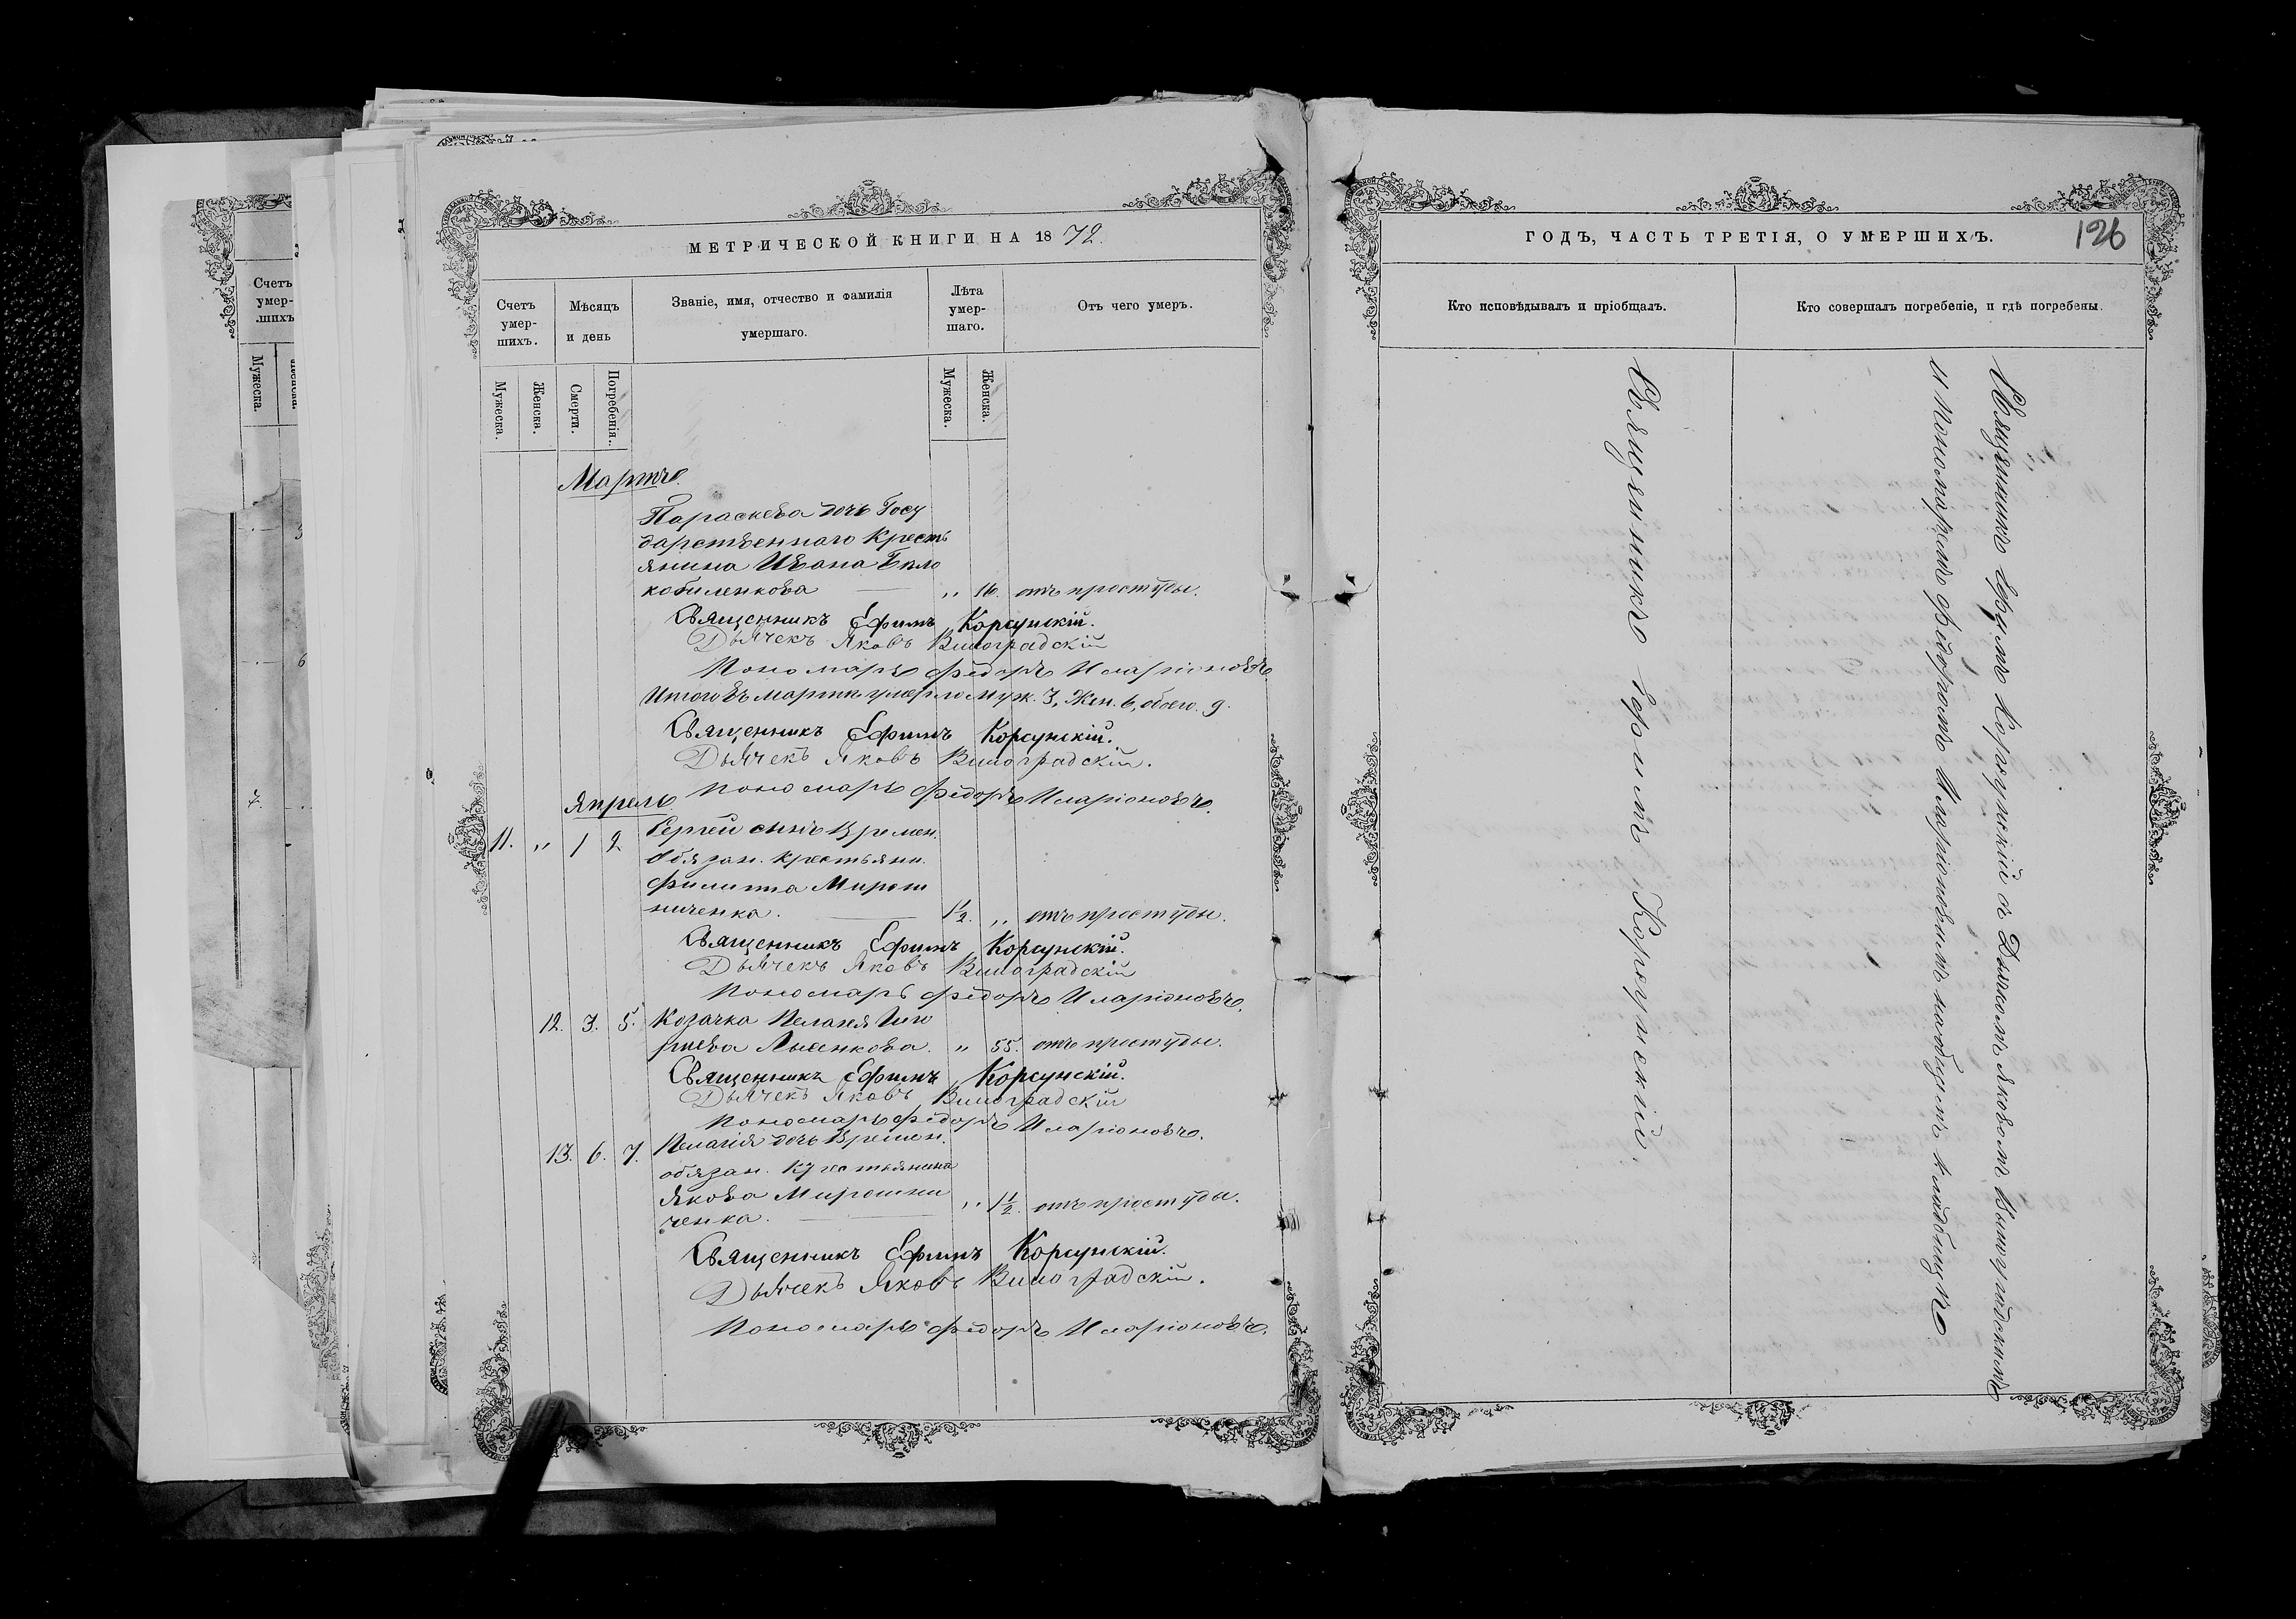 МЕТРИЧЕСКОЙ КНИГИ НА 1872.
Счетъ умер-шихъ.
Мѣсяцъ и день
Званіе, имя, отчество и фамилія умершаго.
Лѣта умер-шаго.
Отъ чего умеръ.
Мужеска.
Женска.
Смерти.
Погребенія.
Мужеска.
Женска.
Мартъ.
Параскева дочь Госу
дарственнаго Кресть
янина Ивана Бѣло
кобиленкова „ 16. отъ простуды.
Священникъ Ефимъ Корсунскій.
Дьячекъ Яковъ Виноградскій
Пономарь Ѳедоръ Иларіоновъ
Итого въ Мартѣ умерло муж. 3, Жен. 6, обоего. 9.
Священникъ Ефимъ Корсунскій.
Дьячекъ Яковъ Виноградскій.
Пономарь Ѳедоръ Иларіоновъ.
Апрель
11. „ 1 2 Сергѣй сынъ Времен.
Обязан. крестьяни.
Филиппа Мирош
ниченка. 1½. „ отъ простуды.
Священникъ Ефимъ Корсунскій.
Дьячекъ Яковъ Виноградскій
Пономарь Ѳедоръ Иларіоновъ.
12. 3. 5. Козачка Пелагея
Лысенкова. „ 55. отъ простуды.
Священникъ Ефимъ Корсунскій.
Дьячекъ Яковъ Виноградскій
Пономарь Ѳедоръ Иларіоновъ.
13. 6. 7. Пелагія дочь Времен.
обязан. Крестьянина
Якова Мирошни
ченка. „ 1½. отъ простуды.
Священникъ Ефимъ Корсунскій.
Дьячекъ Яковъ Виноградскій.
Пономарь Ѳедоръ Иларіоновъ.
ГОДЪ, ЧАСТЬ ТРЕТІЯ, О УМЕРШИХЪ.
126
Кто исповѣдывалъ и пріобщалъ.
Кто совершалъ погребеніе, и гдѣ погребены.
Священникъ Ефимъ Корсунскій.
Священникъ Ефимъ Корсунскій съ Дьячкомъ Яковомъ Виноградскимъ
и пономаремъ Ѳедоромъ Иларіоновымъ на общемъ кладбищѣ
Счетъ
умер-
шихъ
Мужеска.
7.